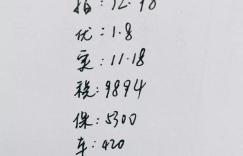 指: 12.98
优: 1.8
实: 11.18
税: 9894
保: 5300
车: 420